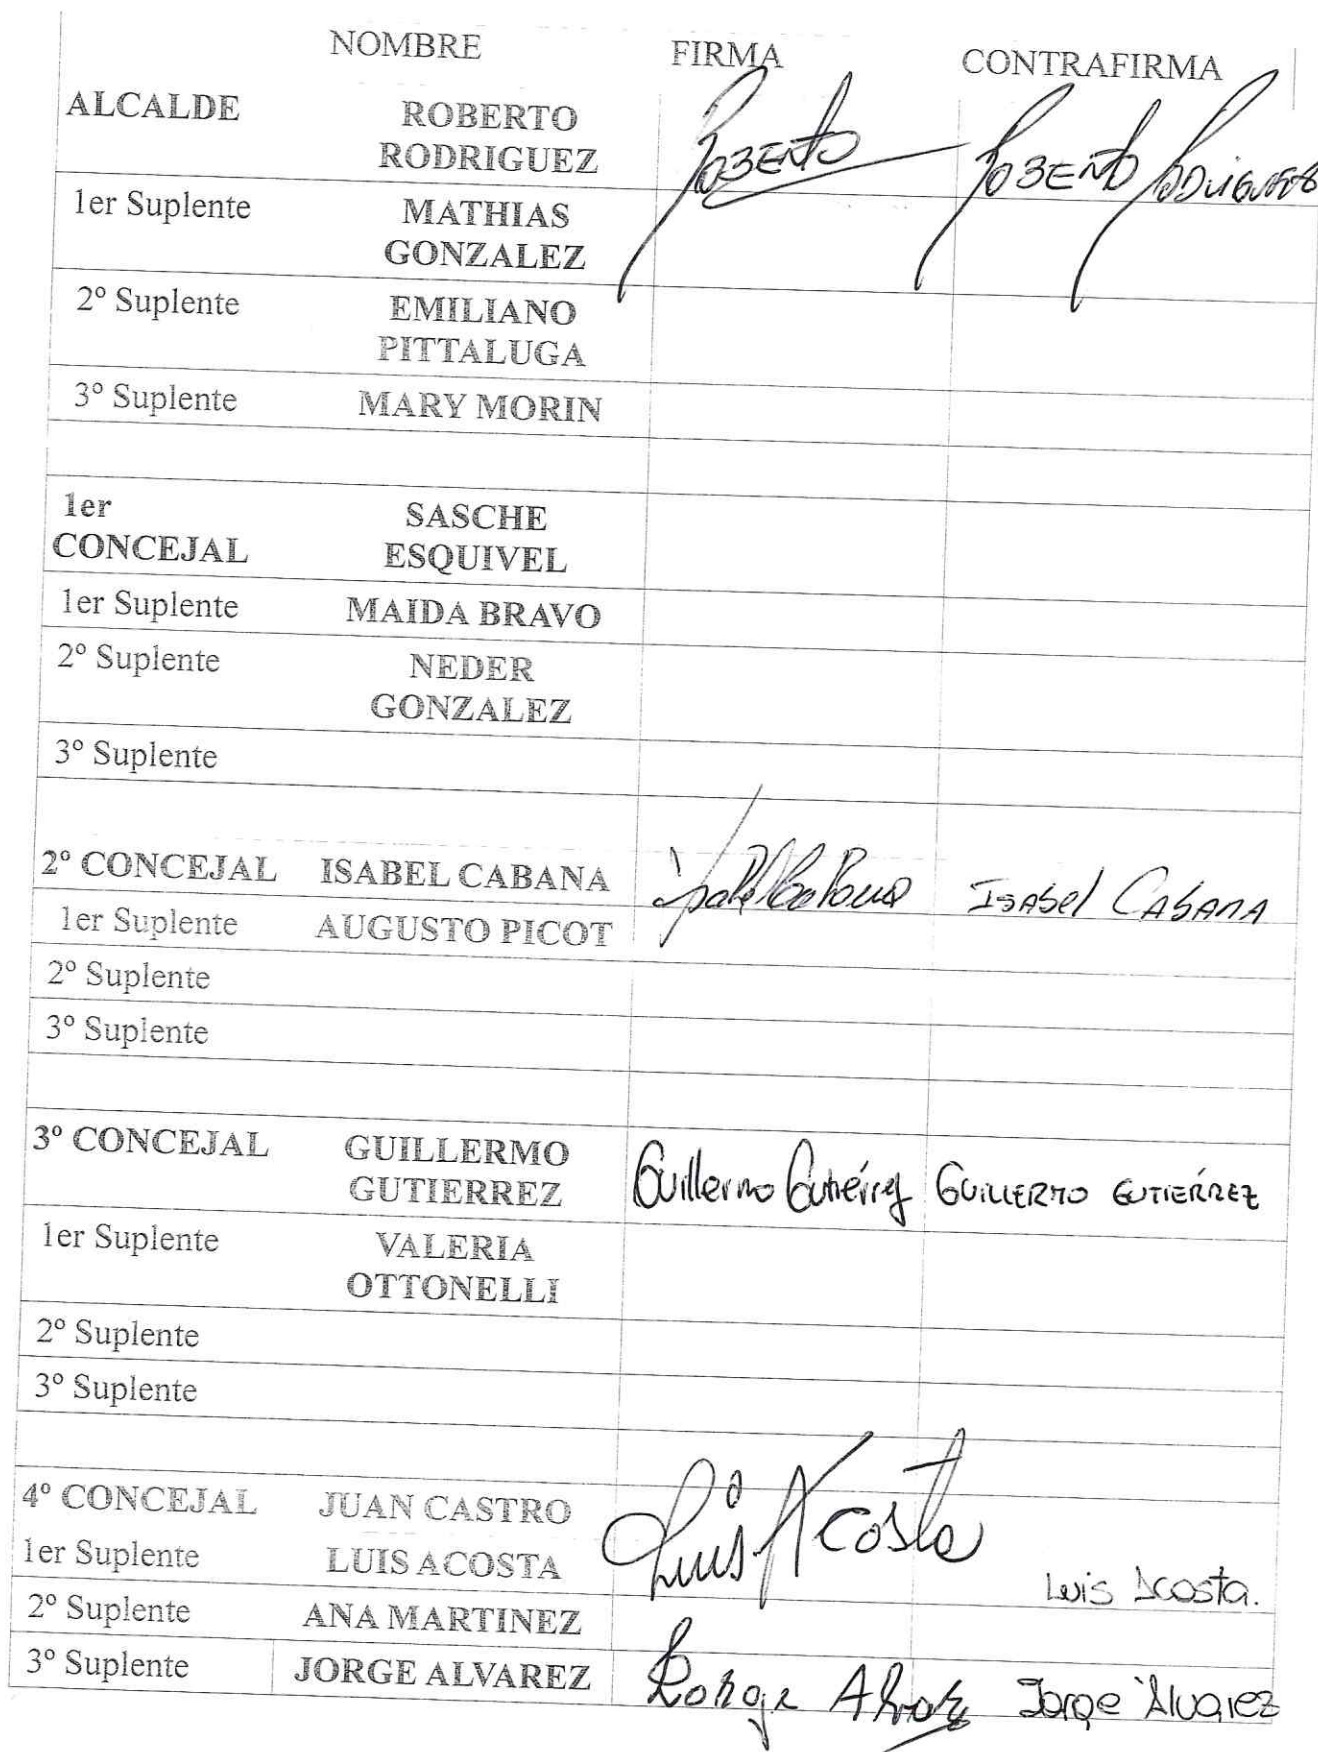 NOMBRE FIRMA CONTRAFIRMA
ALCALDE ROBERTO
RODRIGUEZ Roberto Roberto Rodriguez
1er Suplente MATHIAS
GONZALEZ
2º Suplente EMILIANO
PITTALUGA
3º Suplente MARY MORIN
1er SASCHE
CONCEJAL ESQUIVEL
1er Suplente MAIDA BRAVO
2º Suplente NEDER
GONZALEZ
3º Suplente
2º CONCEJAL ISABEL CABANA Isabel Cabana
1er Suplente AUGUSTO PICOT
2º Suplente
3º Suplente
3º CONCEJAL GUILLERMO
GUTIERREZ Guillermo Gutiérrez GUILLERMO GUTIÉRREZ
1er Suplente VALERIA
OTTONELLI
2º Suplente
3º Suplente
4º CONCEJAL JUAN CASTRO
1er Suplente LUIS ACOSTA Luis Acosta Luis Acosta.
2º Suplente ANA MARTINEZ
3º Suplente JORGE ALVAREZ Jorge Alvarez Jorge Alvarez